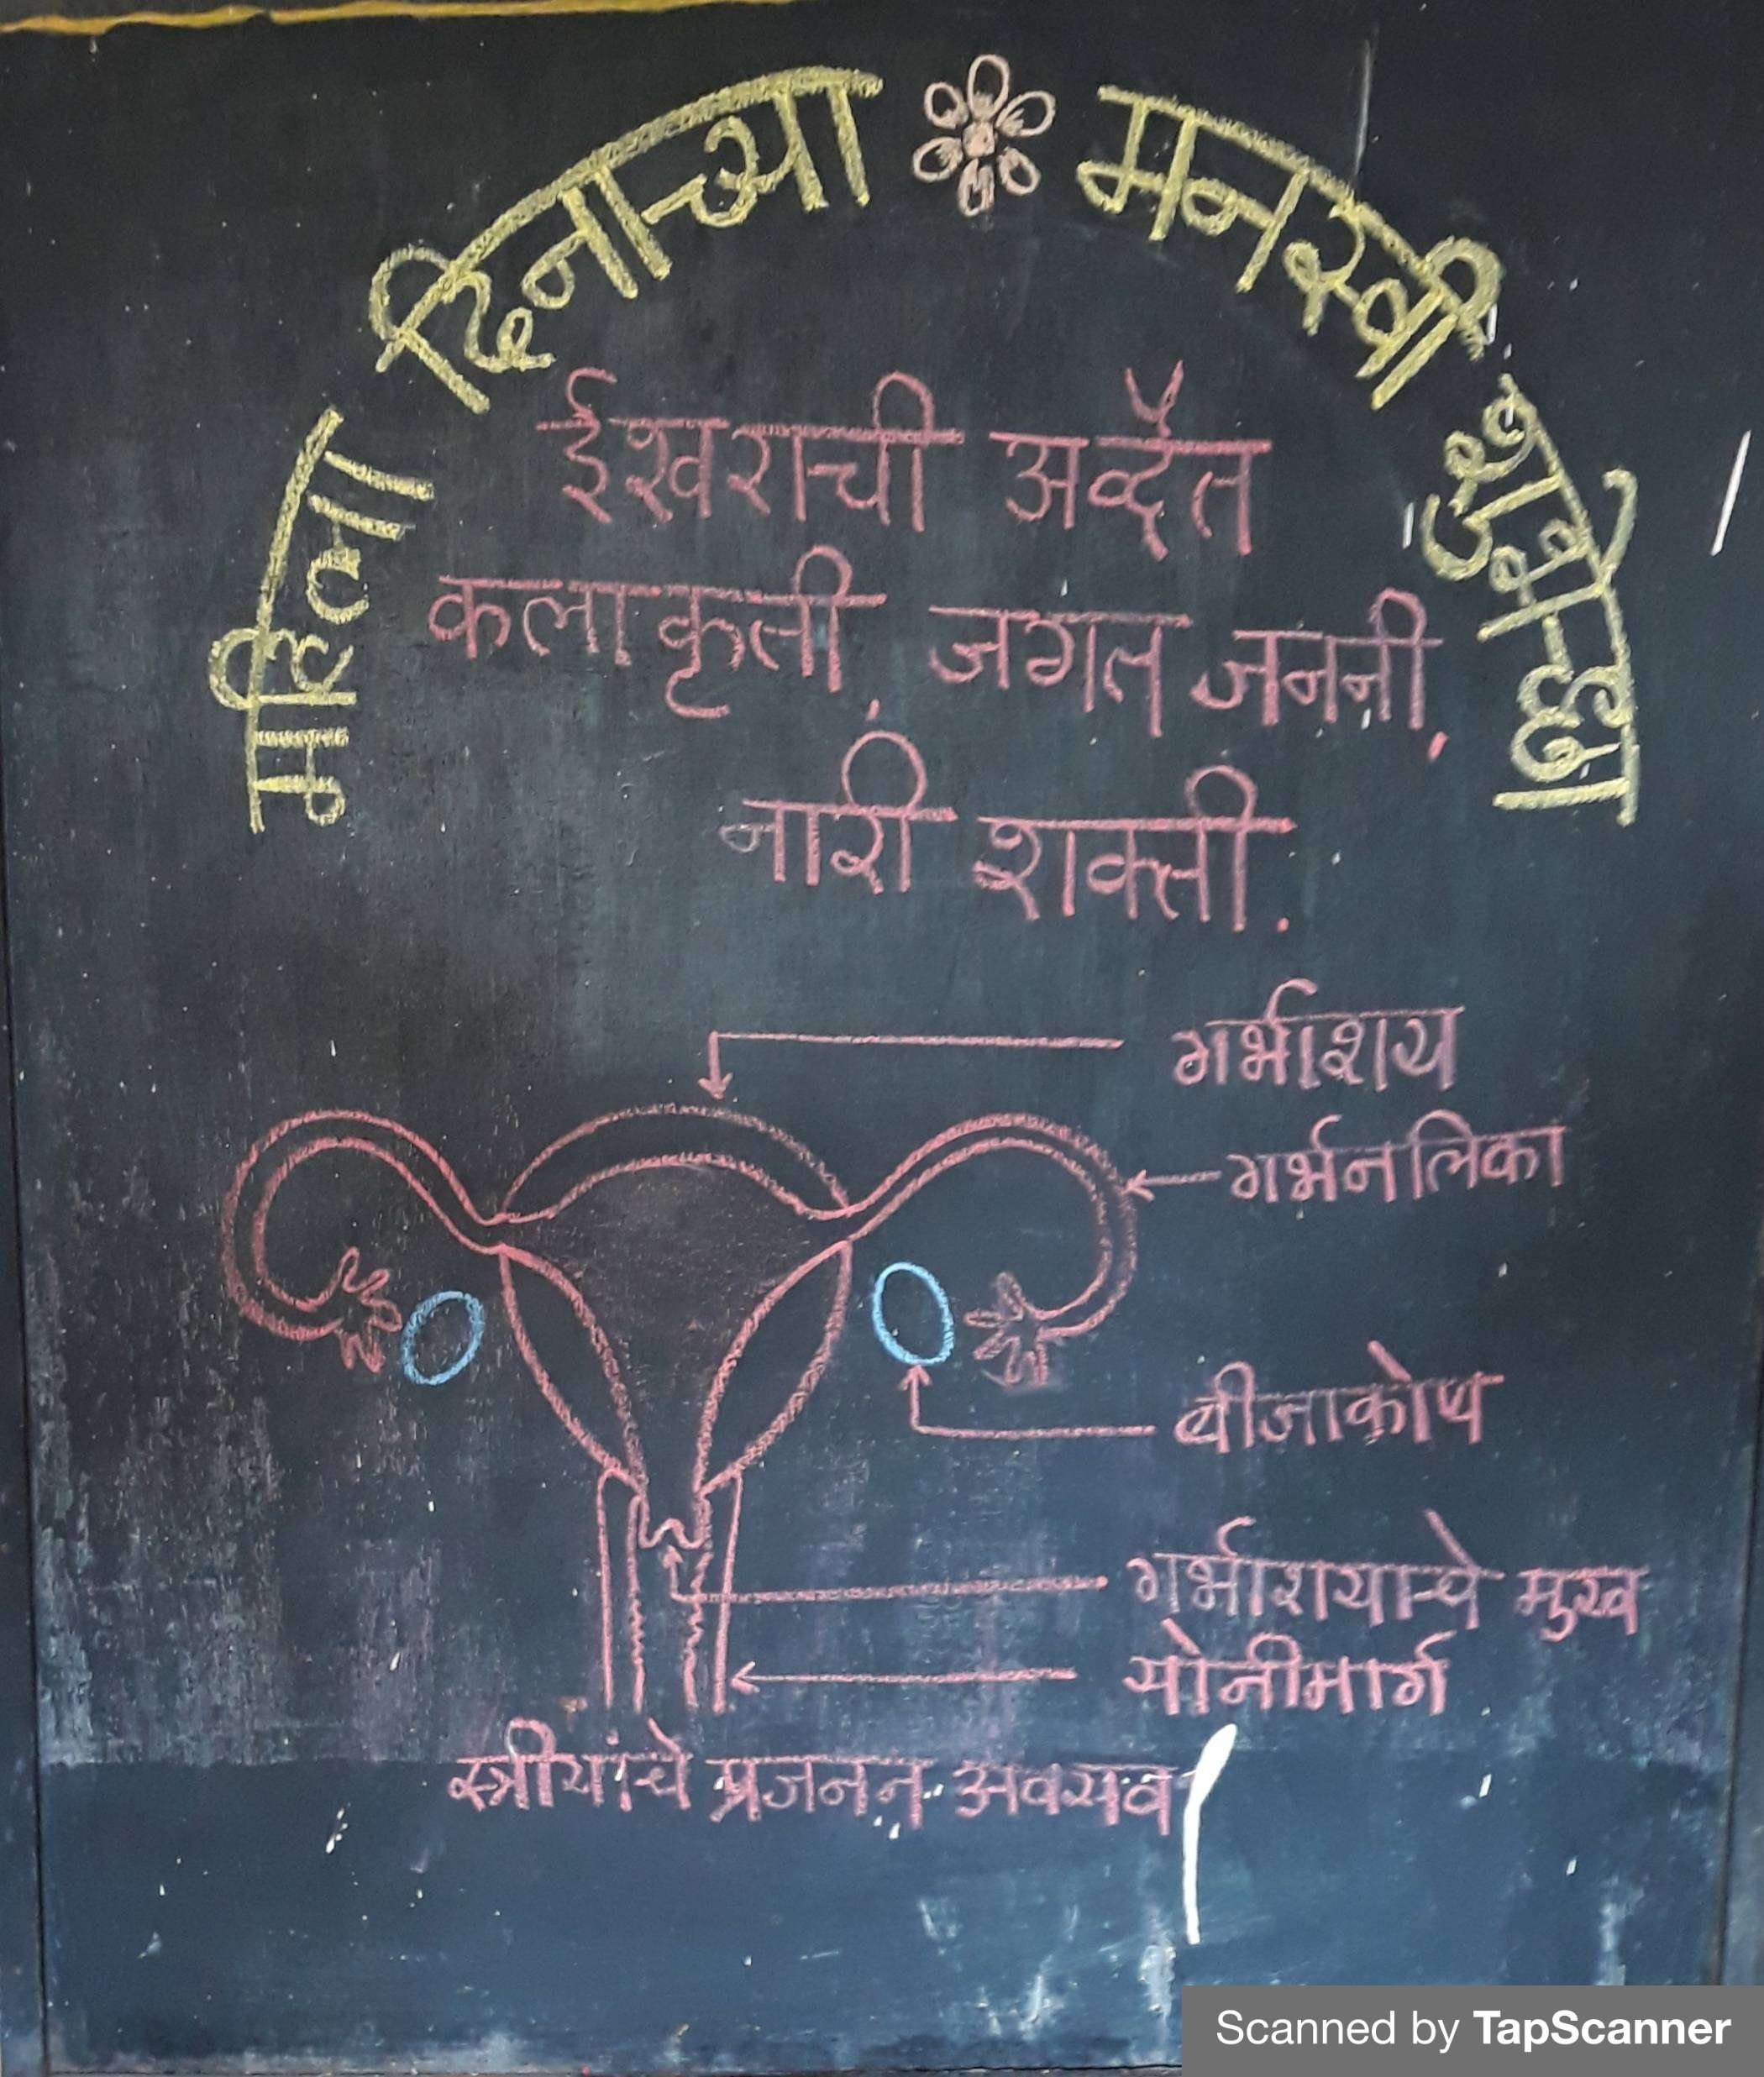 महिला दिनाच्या मनस्वी शुभेच्छा
ईश्वराची अव्दैत
कलाकृती, जगत जननी,
नारी शक्ती.
गर्भाशय
गर्भनलिका
बीजाकोष
गर्भाशयाचे मुख
योनीमार्ग
स्त्रीयांचे प्रजनन अवयव
Scanned by TapScanner